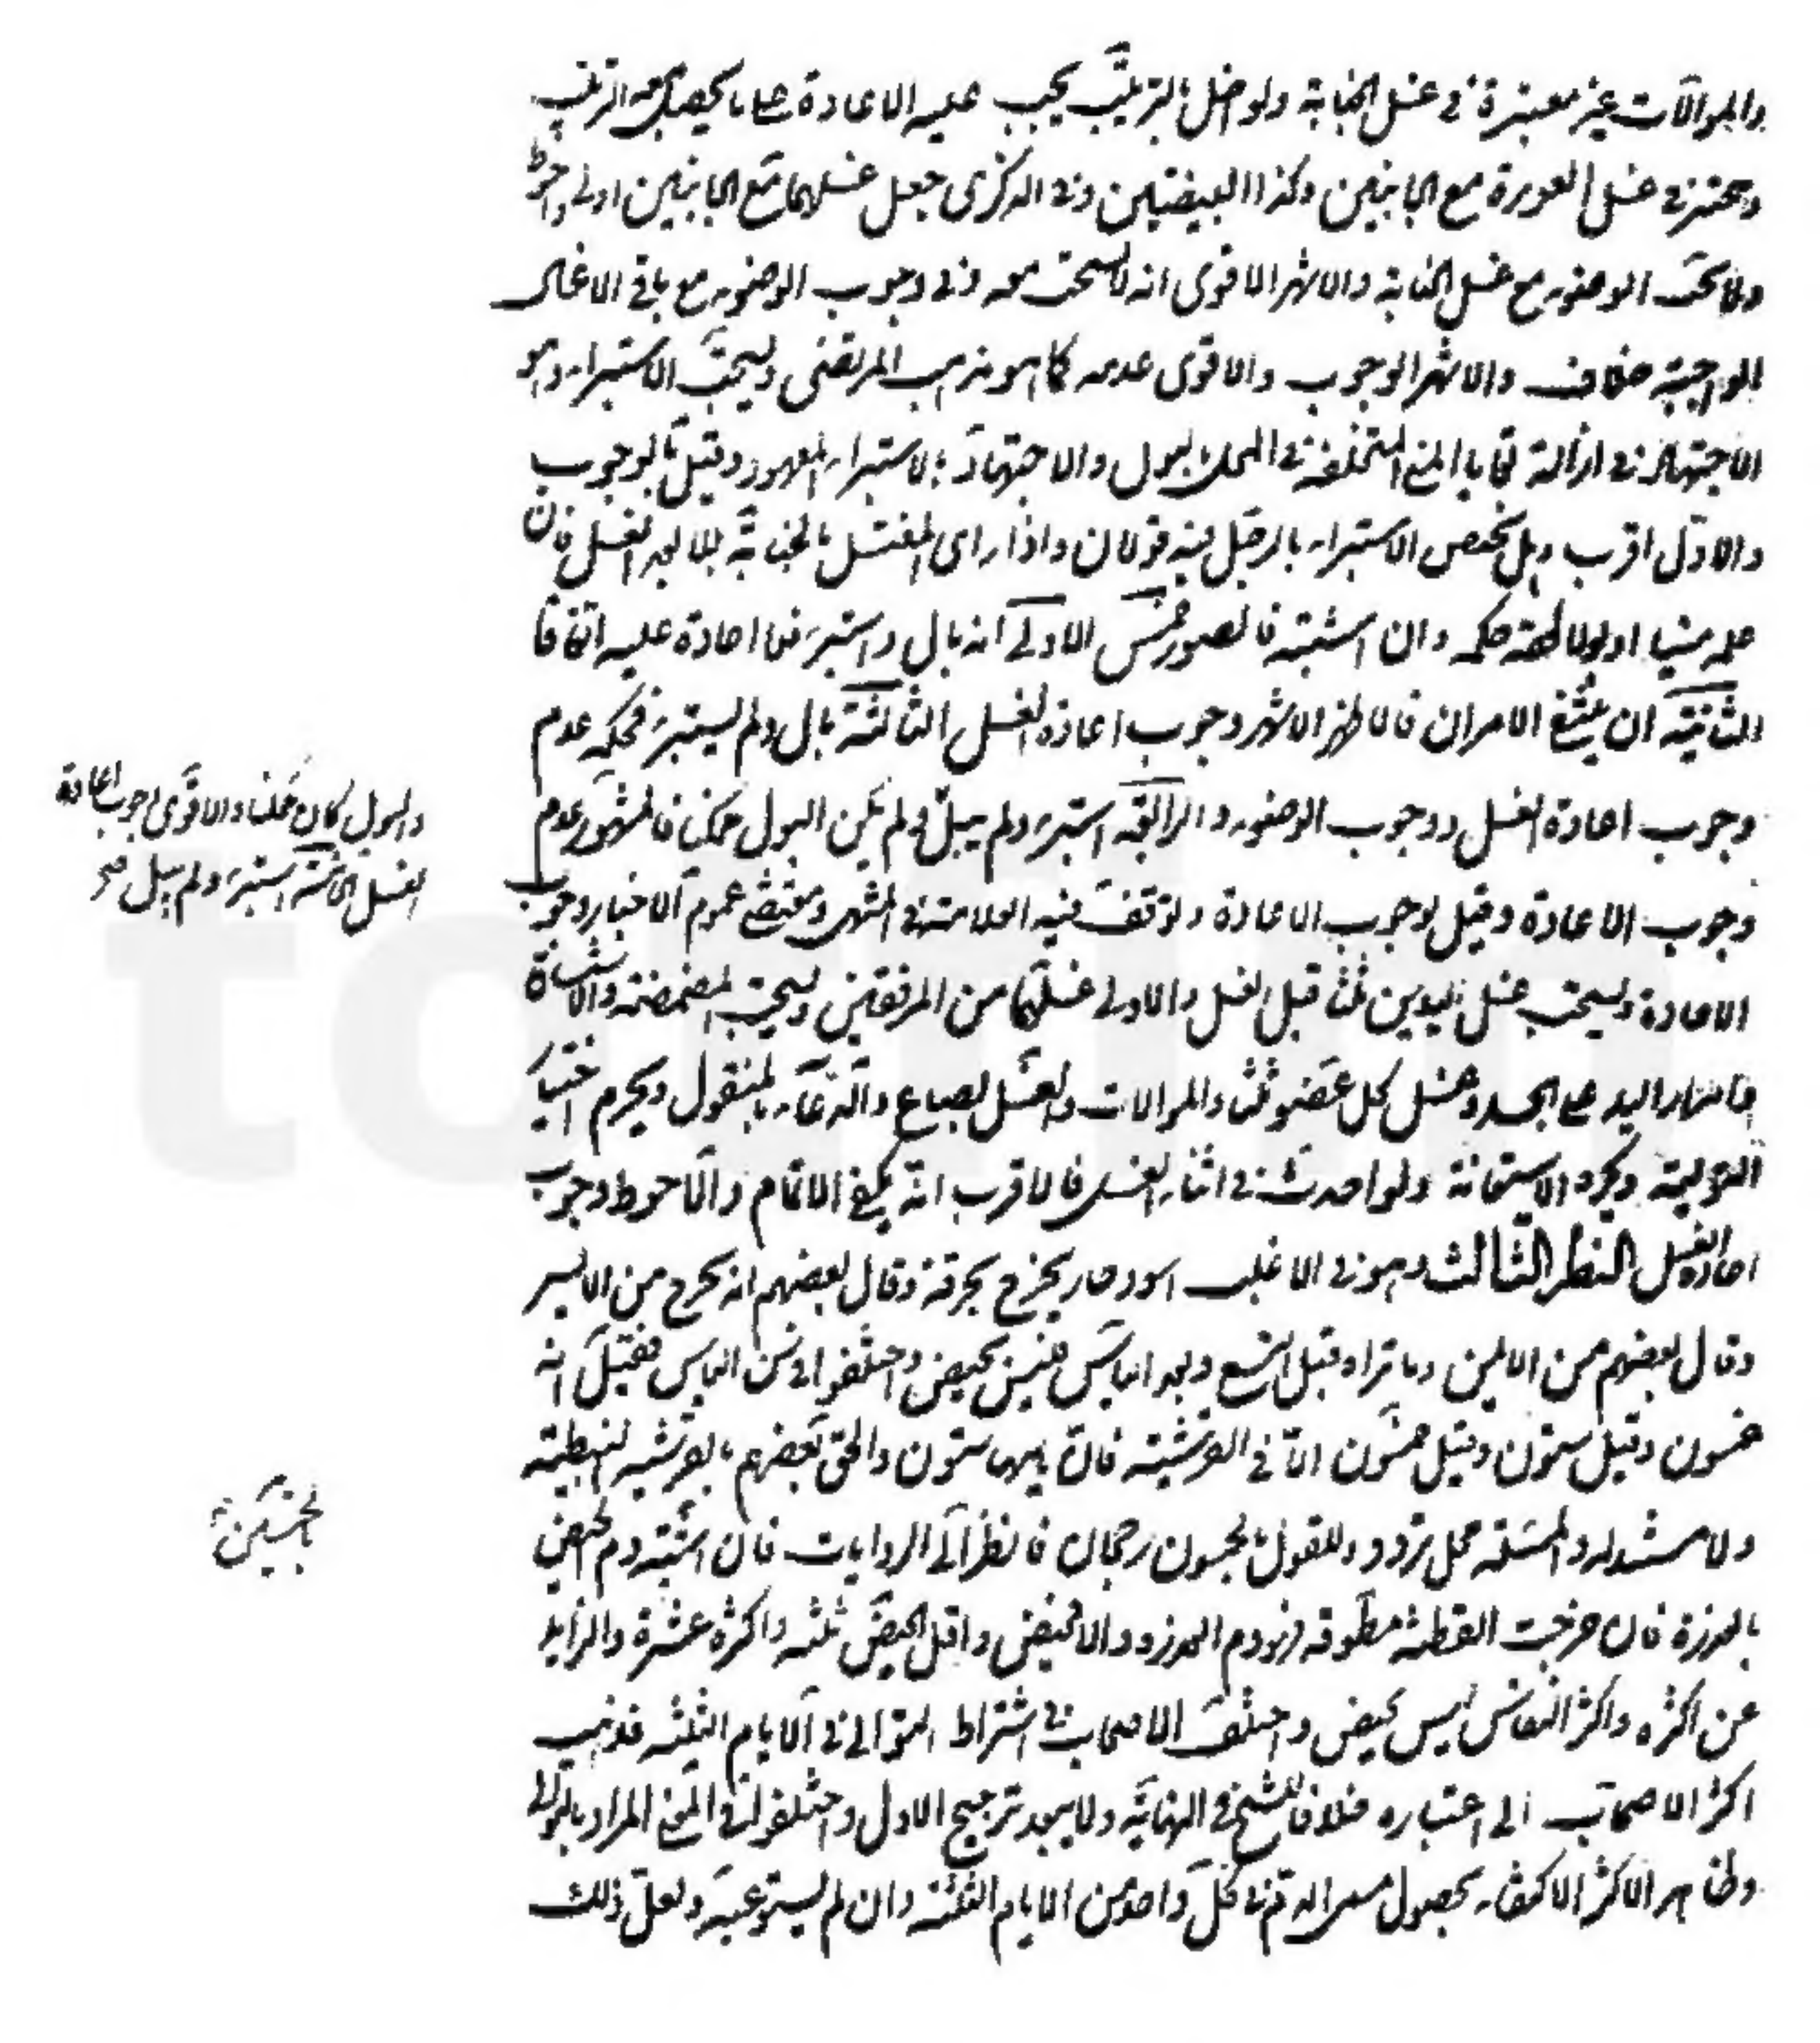 والموالات غير معتبرة في غسل الجنابة ولو اخل بالترتيب يجب عليه الاعادة على ما يحصل معه الترتيب
ويتخير في غسل العورة مع اي الجانبين وكذا البيضتين وفي الذكرى جعل غسلهما مع الجانبين اولى واحوط
ولا يجب الوضوء مع غسل الجنابة والاشهر الاقوى انه لا يستحب معه وفي وجوب الوضوء مع باقي الاغسال
الواجبة خلاف والاشهر الوجوب والاقوى عدمه كما هو مذهب المرتضى ويستحب الاستبراء وهو
الاجتهاد في ازالة بقايا المني المتخلفة في المحل بالبول والاجتهاد بالاستبراء المعهود وقيل بالوجوب
والاول اقرب وهل يختص الاستبراء بالرجل فيه قولان واذا راى المغتسل بالجنابة بللا بعد الغسل فان
علمه منيا او بولا لحقه حكمه وان اشتبه فالصور خمس الاولى انه بال واستبرء فلا اعادة عليه اتفاقا
الثانية ان ينتفي الامران فالاظهر الاشهر وجوب اعادة الغسل الثالثة بال ولم يستبرء فحكمه عدم
وجوب اعادة الغسل ووجوب الوضوء والرابعة استبرء ولم يبل ولم يكن البول ممكنا فالمشهور عدم
والبول كان ممكنا والاقوى وجوب اعادة
الغسل الخامسة استبرء ولم يبل صح
وجوب الاعادة وقيل بوجوب الاعادة وتوقف فيه العلامة في المنتهى ومقتضى عموم الاخبار وجوب
الاعادة ويستحب غسل اليدين ثلثا قبل الغسل والاولى غسلهما من المرفقين ويستحب المضمضة والاستنشاق
وامرار اليد على الجسد وغسل كل عضو ثلثا والموالات والغسل بصاع والدعاء بالمنقول ويحرم اختيارا
التولية ويكره الاستعانة ولو احدث في اثناء الغسل فالاقرب انه يكفي الاتمام والاحوط وجوب
اعادة الغسل النظر الثالث وهو في الاغلب اسود حار يخرج بحرقة وقال بعضهم انه يخرج من الايسر
وقال بعضهم من الايمن وما تراه قبل التسع وبعد الياس فليس بحيض واختلفوا في سن الياس فقيل انه
خمسون وقيل ستون وقيل خمسون الا في القرشية فان ياسها ستون والحق بعضهم بالقرشية النبطية
ولا مستند له والمسئلة محل تردد وللقول بالخمسين رجحان فالنظر الى الروايات فان اشتبه دم الحيض
بالخمسين
بالعذرة فان خرجت القطنة مطوقة فهو دم العذرة والا فحيض واقل الحيض ثلثة واكثره عشرة والزايد
عن اكثره واكثر النفاس ليس بحيض واختلف الاصحاب في اشتراط التوالي في الايام الثلثة فذهب
اكثر الاصحاب الى اعتباره خلافا للشيخ في النهاية ولا يبعد ترجيح الاول واختلفوا في المعنى المراد بالتوالي
وظاهر الاكثر الاكتفاء بحصول مسمى الدم في كل واحد من الايام الثلثة وان لم يستوعبه ولعل ذلك